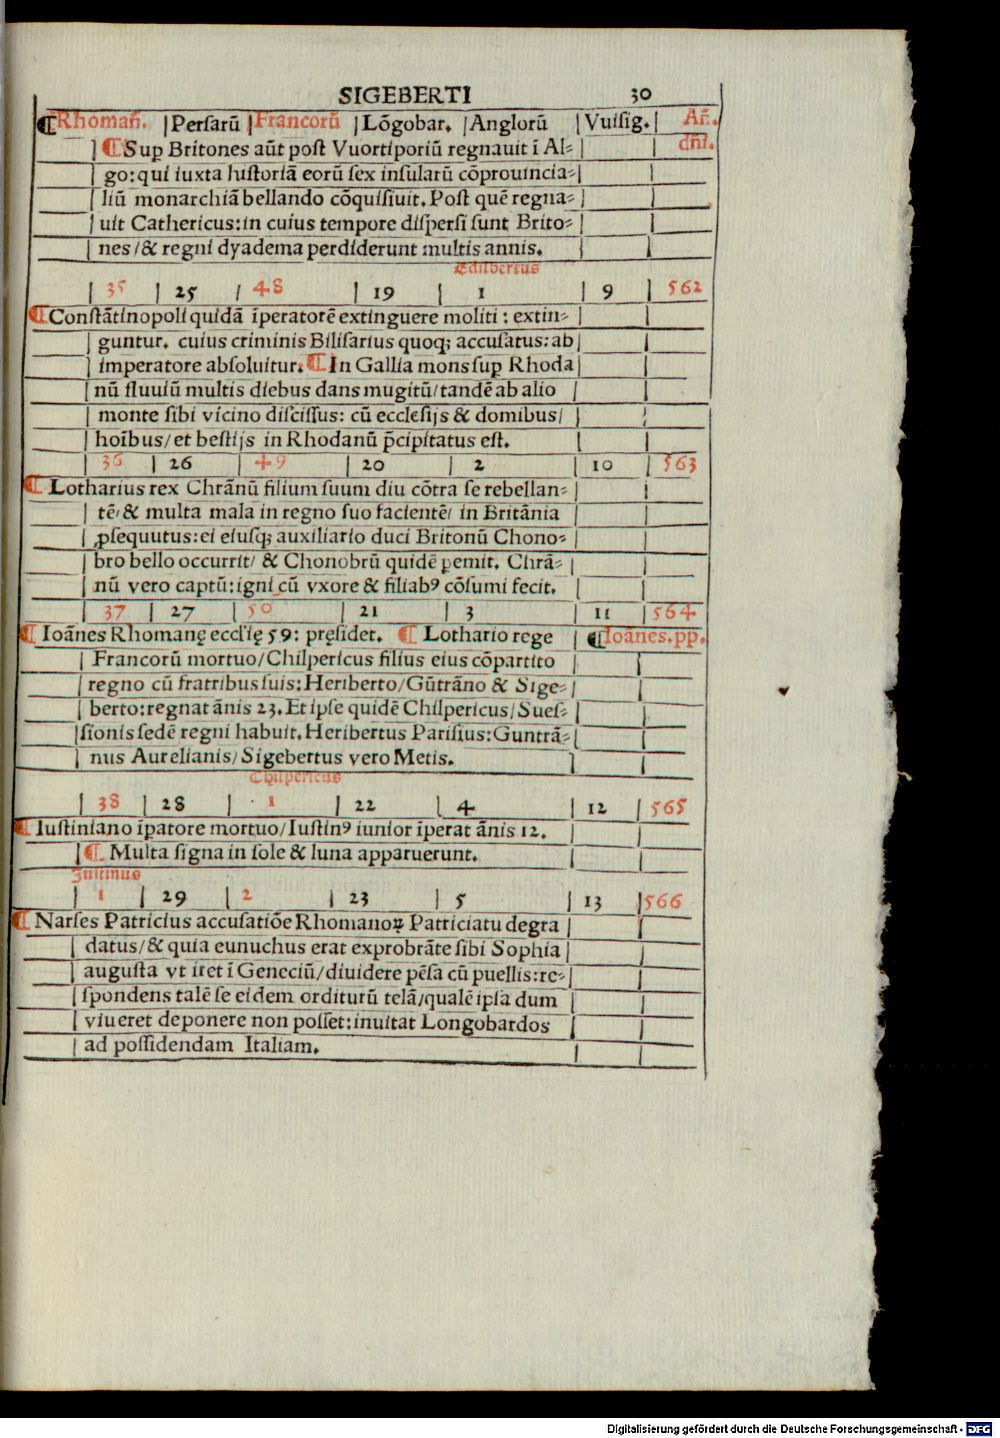 SIGEBERTI 30
¶Rhomañ. |Persarũ |Francorũ |Lõgobar. |Anglorũ |Vuisig.| Añ.
¶Sup Britones aũt post Vuortiporiũ regnauit ĩ Al⸗ dñi.
go: qui iuxta historiã eorũ sex insularũ cõprouincia⸗
liũ monarchiã bellando cõquisiuit. Post quẽ regna⸗
uit Cathericus: in cuius tempore dispersi sunt Brito⸗
nes/ & regni dyadema perdiderunt multis annis.
Edilbertus
| 35 | 25 | 48 | 19 | 1 | 9 | 562
¶Constãtinopoli quidã ĩperatorẽ extinguere moliti: extin⸗
guntur. cuius criminis Bilisarius quoq; accusatus: ab
imperatore absoluitur. ¶In Gallia mons sup Rhoda
nũ fluuiũ multis diebus dans mugitũ/ tandẽ ab alio
monte sibi vicino discissus: cũ ecclesijs & domibus/
hoĩbus/ et bestijs in Rhodanũ p̃cipitatus est.
| 36 | 26 | 49 | 20 | 2 | 10 | 563
¶Lotharius rex Chrãnũ filium suum diu cõtra se rebellan⸗
tẽ/ & multa mala in regno suo facientẽ/ in Britãnia
ꝓsequutus: ei eiusq; auxiliario duci Britonũ Chono⸗
bro bello occurrit/ & Chonobrũ quidẽ pemit. Chrã⸗
nũ vero captũ: igni cũ vxore & filiab⁹ cõsumi fecit.
| 37 | 27 | 50 | 21 | 3 | 11 | 564
¶Ioãnes Rhomanę eccl̃ię 59: pręsidet. ¶Lothario rege | ¶Ioãnes.pp.
Francorũ mortuo/ Chilpericus filius eius cõpartito
regno cũ fratribus suis: Heriberto/ Gũtrãno & Sige⸗
berto: regnat ãnis 23. Et ipse quidẽ Chilpericus/ Sues⸗
sionis sedẽ regni habuit. Heribertus Parisius: Guntrã⸗
nus Aurelianis/ Sigebertus vero Metis.
Chilpericus
| 38 | 28 | 1 | 22 | 4 | 12 | 565
¶Iustiniano ĩpatore mortuo/ Iustin⁹ iunior ĩperat ãnis 12.
¶Multa signa in sole & luna apparuerunt.
Iustinus
| 1 | 29 | 2 | 23 | 5 | 13 | 566
¶Narses Patricius accusatiõe Rhomanoꝝ Patriciatu degra
datus/ & quia eunuchus erat exprobrãte sibi Sophia
augusta vt iret ĩ Geneciũ/ diuidere pẽsa cũ puellis: re⸗
spondens talẽ se eidem orditurũ telã/ qualẽ ipsa dum
viueret deponere non posset: inuitat Longobardos
ad possidendam Italiam.
Digitalisierung gefördert durch die Deutsche Forschungsgemeinschaft - DFG